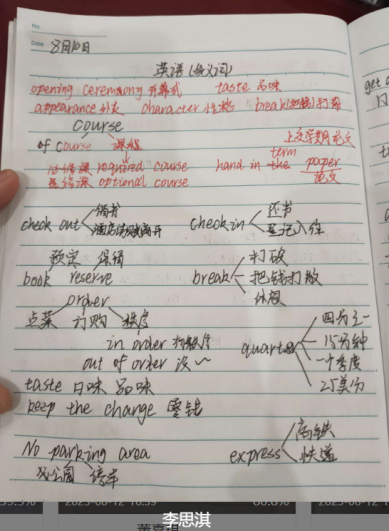 No.
Date 8月10日
英语(多义词)
opening ceremaony 开幕式 taste 品味
appearance 外表 character 性格 break(把钱)打散
course
of course 课程
上交学期论文
必修课 required course hand in the term paper
选修课 optional course 论文
check out 借书 check in 还书
酒店结账离开 登记入住
预定 保留 打破
book reserve break 把钱打散
order 休假
点菜 订购 秩序 四分之一
in order 按顺序 quarter 15分钟
out of order 没~ 一个季度
taste 口味 品味 25美分
keep the change 零钱
No parking area 高铁
公園 停车 express 快递
李思淇